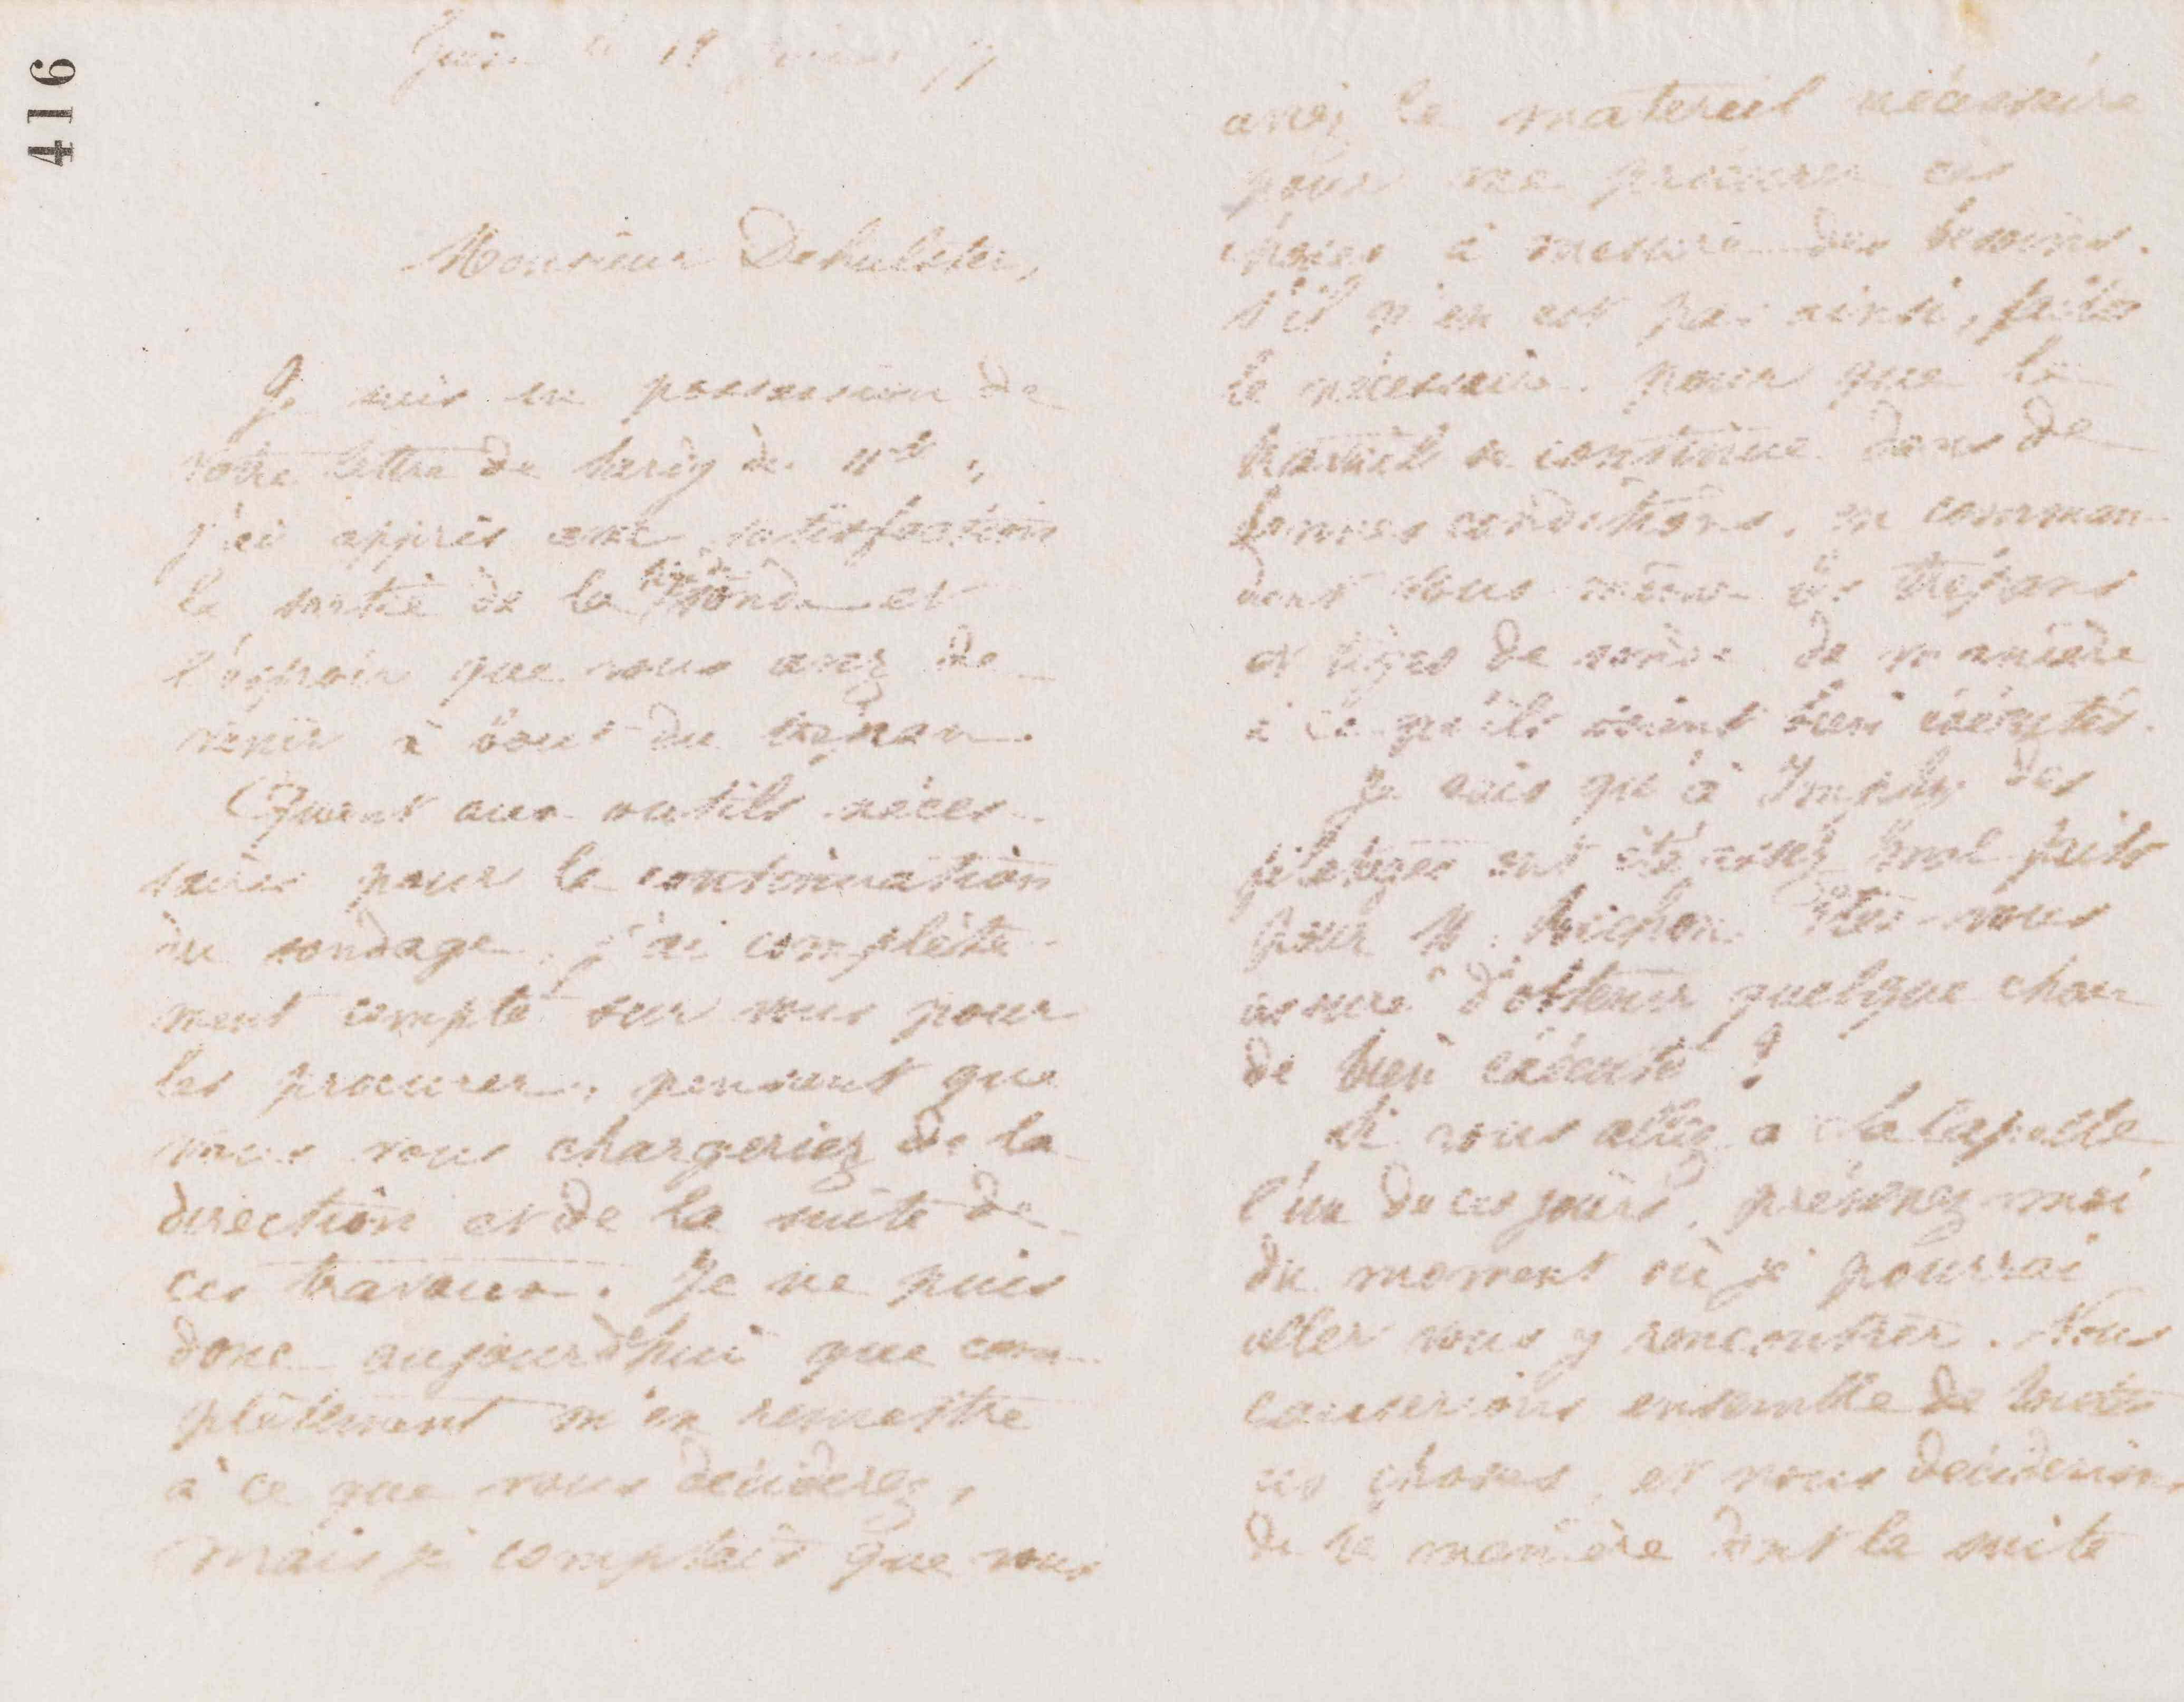 416
Guise le 19 77
Monsieur Dehulster,
Je suis en possession de
votre lettre de
j'ai appris avec satisfaction
la sortie de la sonde et
l'espoir que vous avez de
venir à bout du trépan.
Quant aux outils néces-
saires pour la continuation
du sondage, j'ai complète-
ment compté sur vous pour
les procurer, pensant que
vous vous chargeriez de la
direction et de la suite de
ces travaux. Je ne puis
donc aujourd'hui que com-
plètement m'en remettre
à ce que vous déciderez,
mais je comptais que vous
aviez le matereil nécessaire
pour me procurer ces
choses à mesure des besoins.
S'il n'en est pas ainsi, faites
le nécessaire pour que le
travail se continue dans de
bonnes conditions, en comman-
dant vous même les trépans
et tiges de sonde de manière
à ce qu'ils soient bien exécutés.
Je sais qu'à Imphy des
ont été assez mal faits
pour M. Êtes-vous
assuré d'obtenir quelque chose
de bien exécuté ?
Si vous allez à La Capelle
l'un de ces jours, prévenez-moi
du moment où je pourrai
aller vous y rencontrer. Nous
causerions ensemble de toutes
ces choses, et nous déciderions
de la manière dont la suite